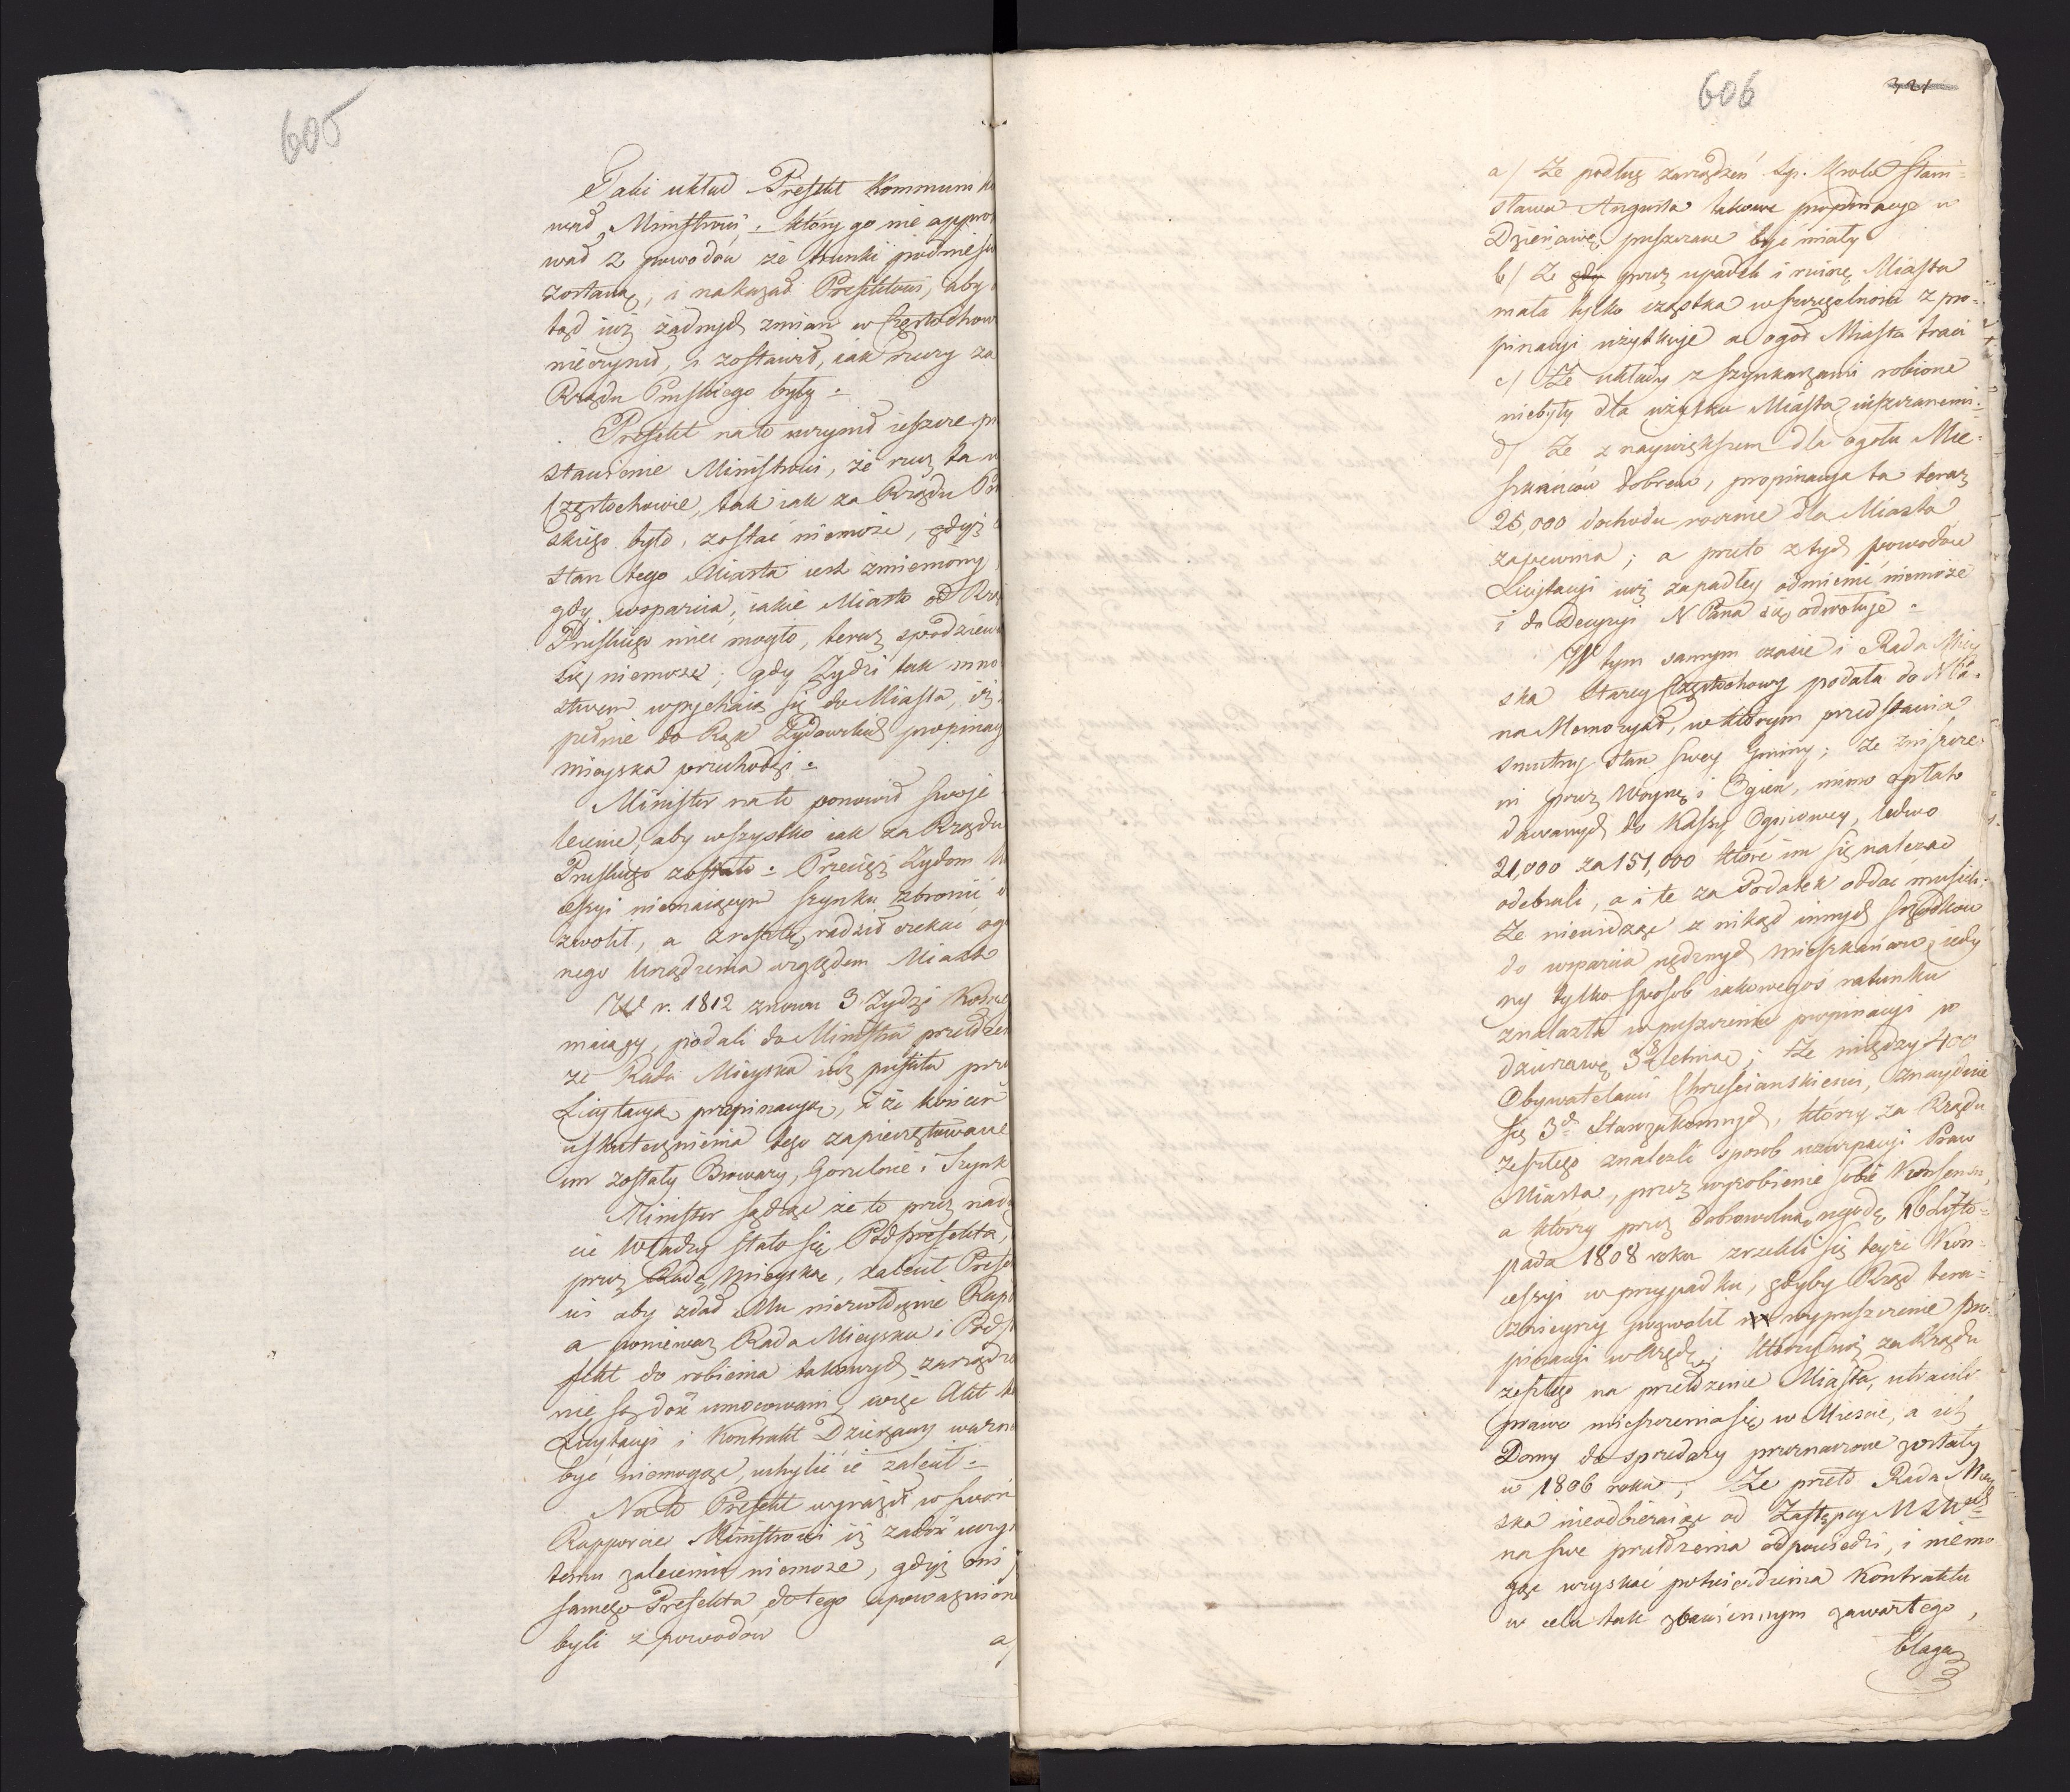 605
Taki układ Prefekt Kommuniko
wał Ministrowi, który go nie appro
wał z powodów że trunki podniesio
zostaną, i nakazał Prefektowi, aby
tąd iuż żądnych zmian w Częstochow
nieczynił, i zostawił, iak rzeczy za
Rządu Pruskiego były =
Prefekt na to uczynił ieszcze
stawienie Ministrowi, że rzecz ta w
Częstochowie, tak iak za Rządu Pru
skiego było, zostać niemoże, gdyż
stan tego Miasta iest zmieniony,
gdy wsparcia, iakie Miasto od Rzą
Pruskiego mieć mogło, teraz spodziewa
się niemoże; gdy Żydzi tak mno
stwem wpychaią się do Miasta, iż
pełnie do Rąk Żydowskich propinacy
mieyska przechodzi =
Minister na to ponowił swoje
lecenie, aby wszystko iak za Rządu
Pruskiego zostało = Przecięż Żydom
cessyi niemaiącym szynku zbronić
zwolił, a zresztą radził czekać ogó
nego Urządzenia względem Miast
W r. 1812 znowu 3 Żydzi Konse
maiący, podali do Ministra przełoże
że Rada Mieyska iuż puściła prze
Licytacyą propinacyą, i że końcem
uskutecznienia tego zapieczętowane
im zostały Browary, Gorzelnie i Szynk
Minister sądząc że to przez naduży
cie Władzy stało się Podprefekta,
przez Radę Mieyską, zalecił Prefe
wi aby zdał Mu niezwłocznie Rapo
a ponieważ Rada Mieyska i Podpre
fekt do robienia takowych zarządze
nie są dość umocowani, więc Akt
Licytacyi i Kontrakt Dzierżawy ważn
być niemogące, uchylić ie zalecił =
Na to Prefekt wyraził w swoim
Rapporcie Ministrowi iż zadość uczy
temu zaleceniu niemoże, gdyż oni
samego Prefekta do tego upoważnion
byli z powodów
a/
606
321
a/ Że podług zarządzeń Sp. Krola Stani=
sława Augusta takowe propinacye w
Dzierżawę puszczane być miały
b/ Ze gdy przez upadek i ruinę Miasta
mała tylko cząstka w szczególności z pro=
pinacyi użytkuje a ogół Miasta traci
c/ Że układy z szynkarzami robione
niebyły dla użytku Miasta uiszczanemi=
d/ Że z naywiększem dla ogołu Mie=
szkańców dobrem, propinacya ta teraz
25,000 dochodu rocznie dla Miasta
zapewnia; a przeto z tych powodów
Licytacyi iuż zapadłey odmienić niemoże
i do Decyzyi N Pana się odwołuje =
W tym samym czasie i Rada Miey
ska Starey Częstochowy podała do N Pa=
na Memoryał, w którym przedstawia
smutny stan swey Gminy; Ze zniszcze
ni przez Woynę i Ogień, mimo opłat
dawanych do Kassy Ogniowey, ledwo
21,000 za 151,000 które im się należało
odebrali, a i te za Podatek oddać musieli;
Ze niewidząc z nikąd innych srzodków
do wsparcia nędznych mieszkańców iedy
ny tylko sposób iakowegoś ratunku
znalazła w puszczeniu propinacyi w
dzierżawę 3letnią; Ze między 400
Obywatelami Chrześcianskiemi, znayduie
się 3ch Starozakonnych, którzy za Rządu
zeszłego znaleźli sposób uzurpacyi Praw
Miasta, przez wyrobienie sobie Konsensu,
a którzy przez dobrowolną ugodę 16 Listo=
pada 1808 roku zrzekli się teyże Kon=
cessyi w przypadku, gdyby Rząd tera=
znieyszy pozwolił na wypuszczenie pro=
pinacyi w Arędę; którzy iuż za Rządu
zeszłego na przełożenie Miasta, utracili
prawo mieszczenia się w Mieście, a ich
Domy do sprzedaży przeznaczone zostały
w 1806 roku; Że przeto Rada Miey
ska nieodbieraiąc od Zastępcy M S W
na swe przełożenia odpowiedzi, i niemo
gąc uzyskać potwierdzenia Kontraktu
w celu tak zbawiennym zawartego,
błaga